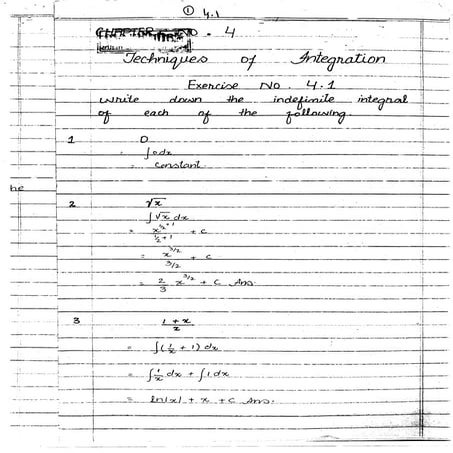 ① 4.1
CHAPTER NO. 4
Techniques of Integration
Exercise NO. 4.1
write down the indefinite integral
of each of the following.
1 0
∫0dx
= Constant
he
2 √x
∫√x dx
= x^(1/2+1) / (1/2+1) + c
= x^(3/2) / (3/2) + c
= 2/3 x^(3/2) + c Ans.
3 (1+x)/x
= ∫(1/x + 1) dx
= ∫1/x dx + ∫1 dx
= ln|x| + x + c Ans.